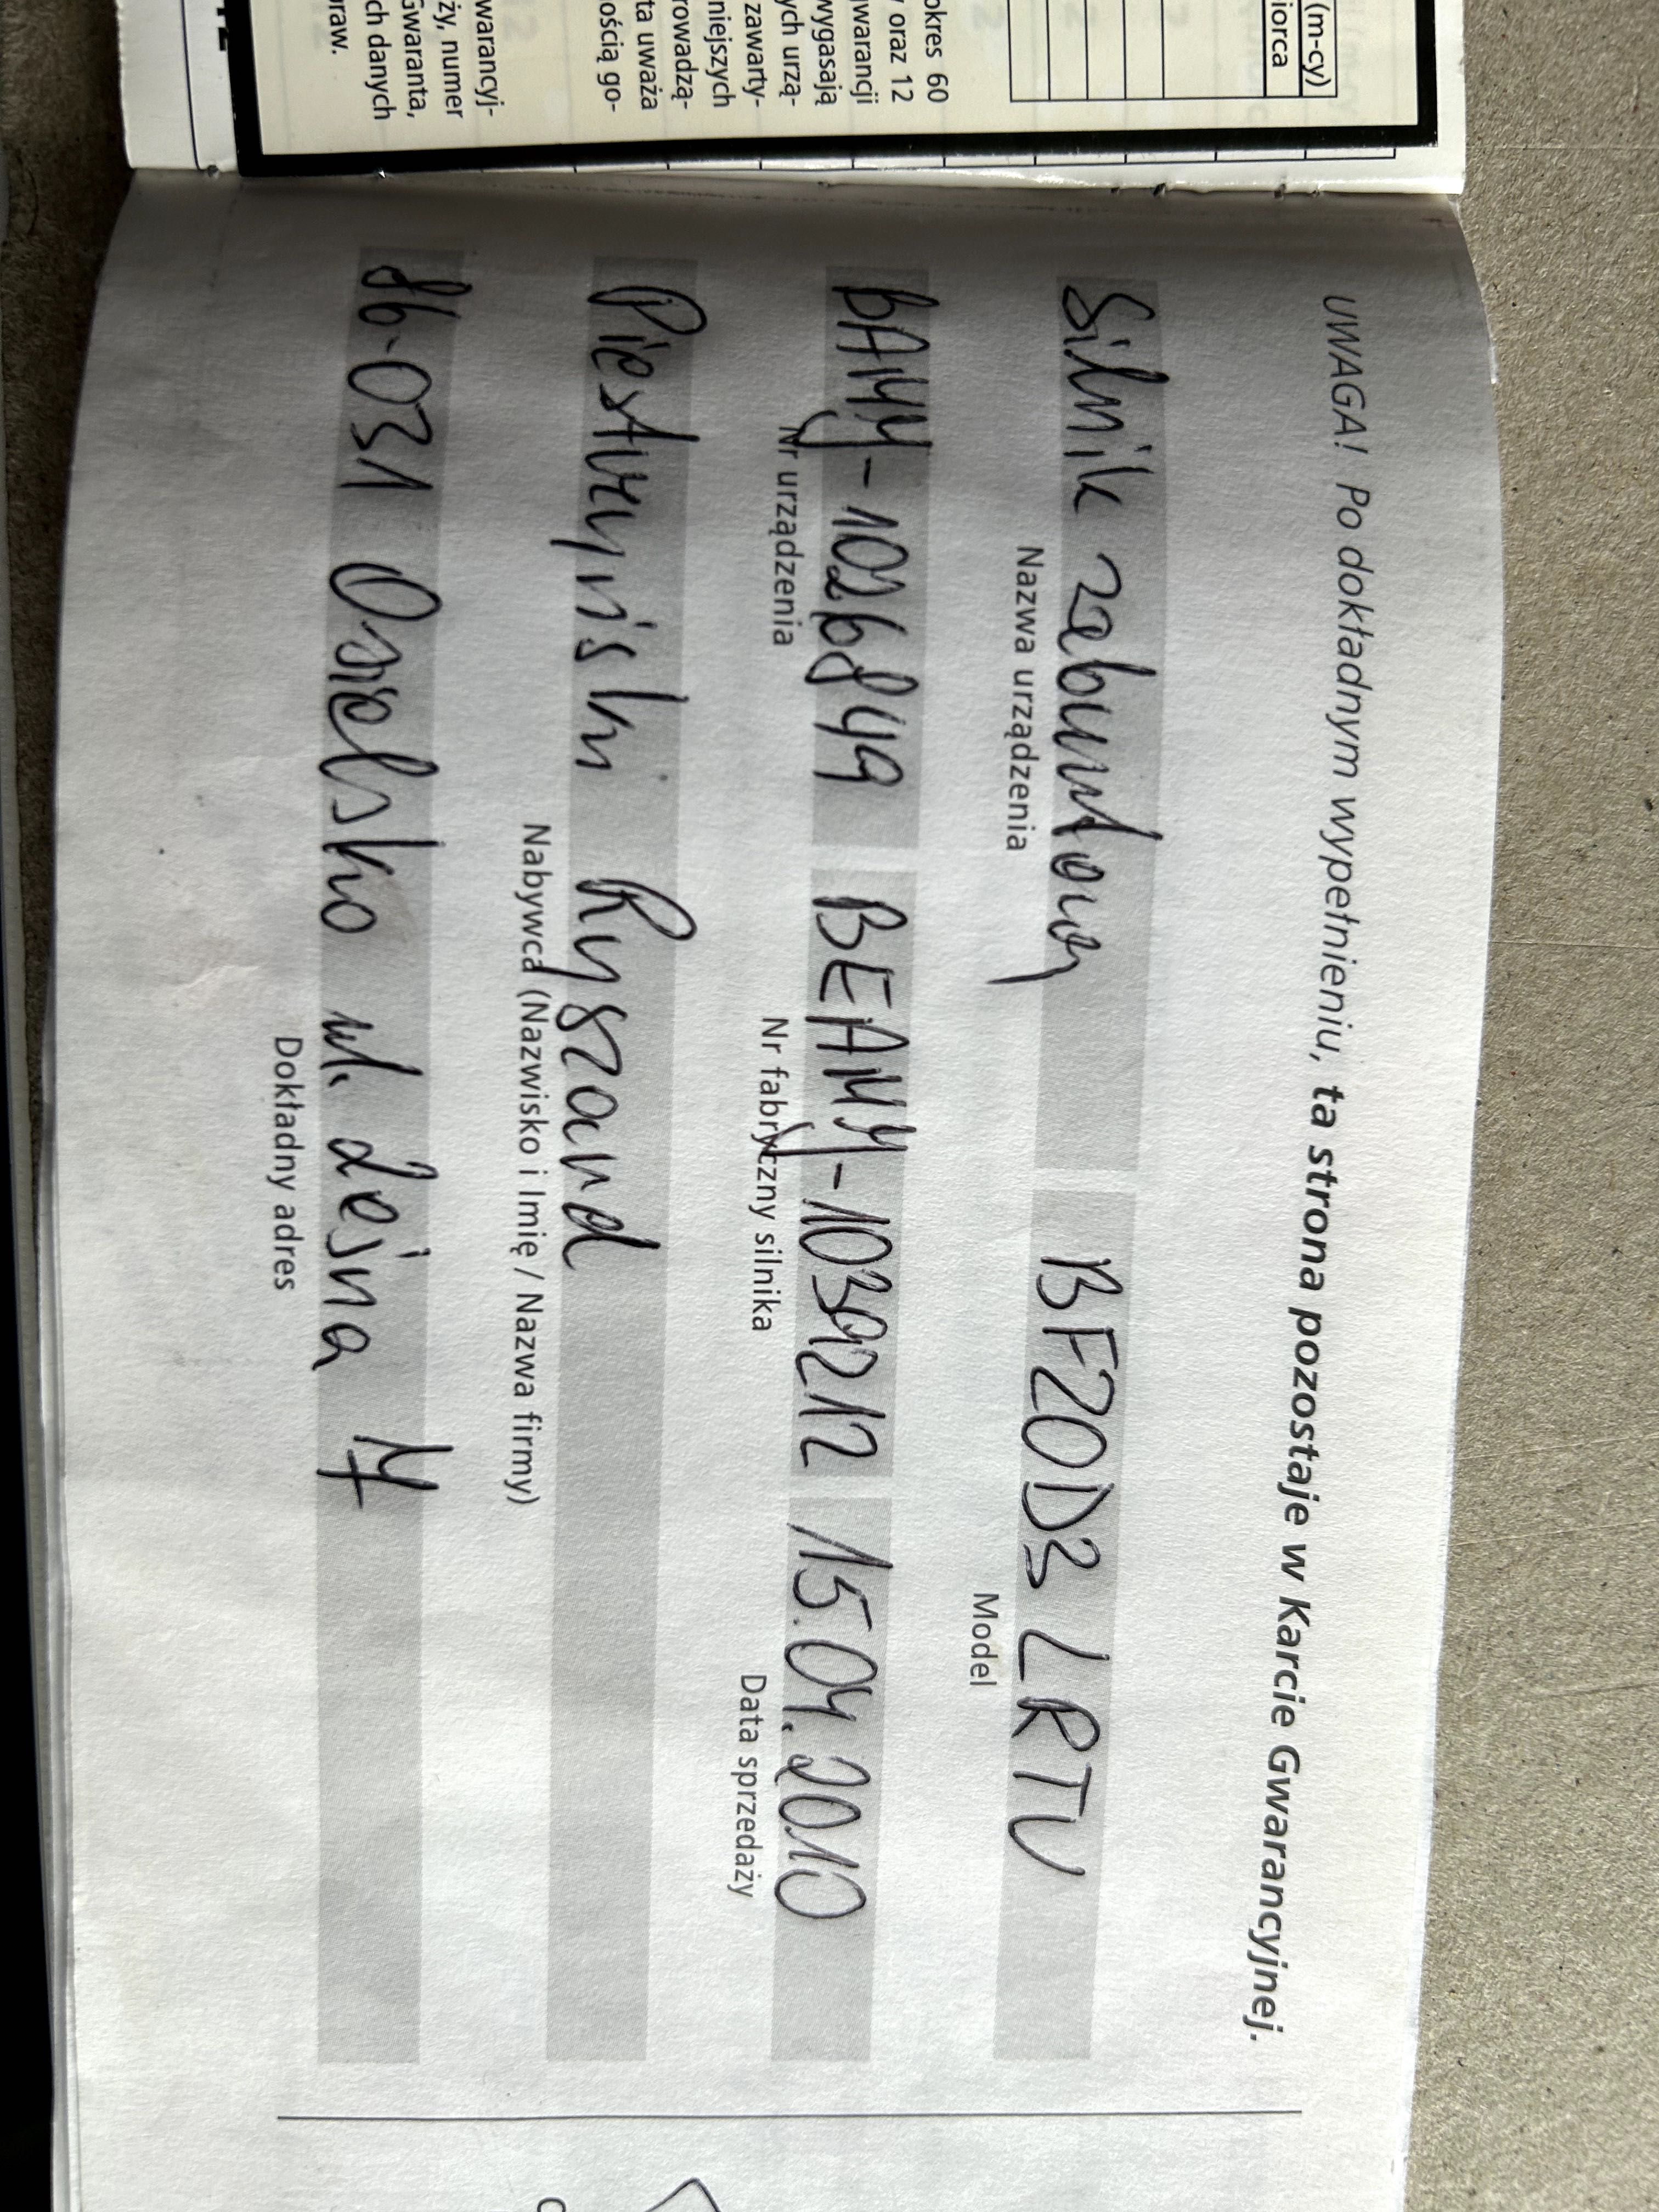 (m-cy)
iorca
okres 60
oraz 12
gwarancji
wygasają
ych urzą-
zawarty-
niejszych
rowadzą-
ta uważa
ością go-
warancyj-
ży, numer
Gwaranta,
ch danych
praw.
UWAGA! Po dokładnym wypełnieniu, ta strona pozostaje w Karcie Gwarancyjnej.
Silnik zaburtowy BF20D3 LRTU
Nazwa urządzenia Model
BAMY-1026849 BEAMY-1039212 15.04.2010
Nr urządzenia Nr fabryczny silnika Data sprzedaży
Ryszard
Nabywca (Nazwisko i Imię / Nazwa firmy)
86-031 Osielsko ul. Leśna
Dokładny adres